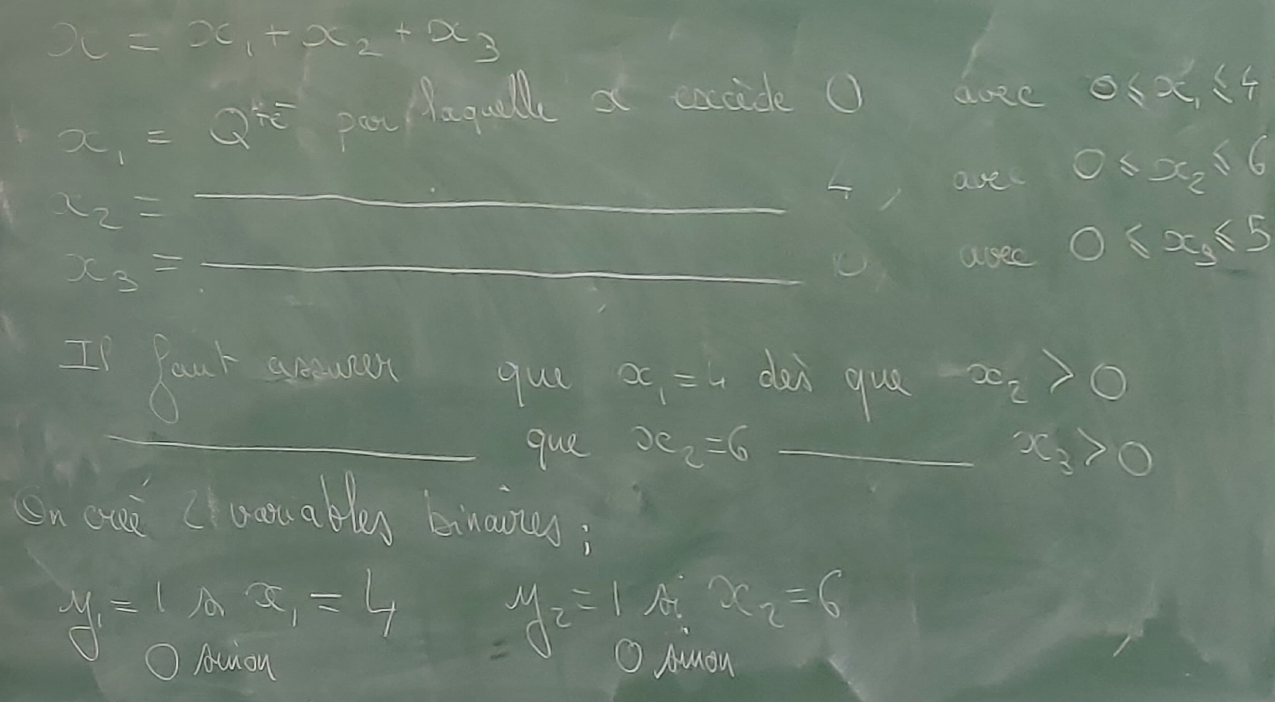 x = x₁ + x₂ + x₃
x₁ = Qté par laquelle x excède 0 avec 0 ≤ x₁ ≤ 4
x₂ = ———————— 4, avec 0 ≤ x₂ ≤ 6
x₃ = ———————— 10, avec 0 ≤ x₃ ≤ 5
Il faut assurer que x₁ = 4 dès que x₂ > 0
———————— que x₂ = 6 ———— x₃ > 0
On crée 2 variables binaires :
y₁ = 1 si x₁ = 4 y₂ = 1 si x₂ = 6
0 sinon 0 sinon